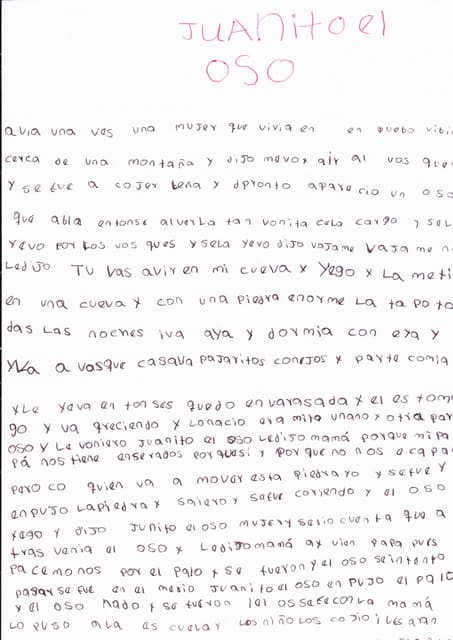 JUANITO el
OSO
avia una ves una mujer que vivia en en puebo vibi
cerca de una montaña y dijo mevox air al vos que
y se fue a cojer leña y dpronto aparecio un oso
que abla entonse al verla tan vonita cela cargo y sel
yevo por los vos ques y sela yevo dijo vajame vajame n
ledijo Tu vas avir en mi cueva x yego x la meti
en una cueva x con una piedra enorme la ta po to
das las noches iva aya y dormia con eya y
iva a vosque casava pajaritos conejos x parte comia
yle yeva entonses quedo envarasada x el estom
go y va creciendo x lonacio era mito unano x otra par
oso y le voniero Juanito el oso ledijo mamá porque mi pa
pá nos tiene enserados porquesi y porque no nos e capa
pero co quien va a mover esta piedrayo y sefue y
enpujo lapiedra x salero y sefue coriendo y el oso
yego y dijo Junito el oso mujer y sedio cuenta que a
tras venia el oso x ledijo mamá ax vien papa pues
pacemonos por el palo x se fueron y el oso se intento
pasar se fue en el medio Juanito el oso en pujo el palo
x el oso nado x se fueron lel ossefecon la mamá
lo puso a la es cuela y los niños los codio iles aran